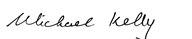 Michael Kelly